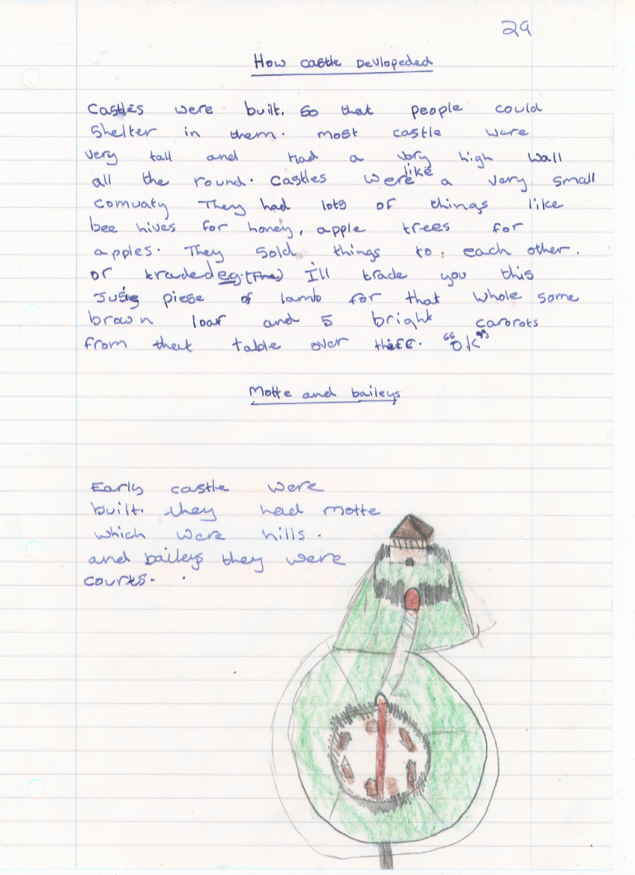 29
How castle Devlopeded
Castles were built. So that people could
Shelter in them. most castle were
very tall and had a very high wall
all the round. Castles were like a very small
comuaty They had lots of things like
bee hives for honey, apple trees for
apples. They sold things to, each other.
or traded eg. I'll trade you this
Jusig piese of lamb for that whole some
brown loaf and 5 bright carorots
from that table over there. "OK"
Motte and baileys
Early castle were
built. they had motte
which were hills.
and baileys they were
courts.